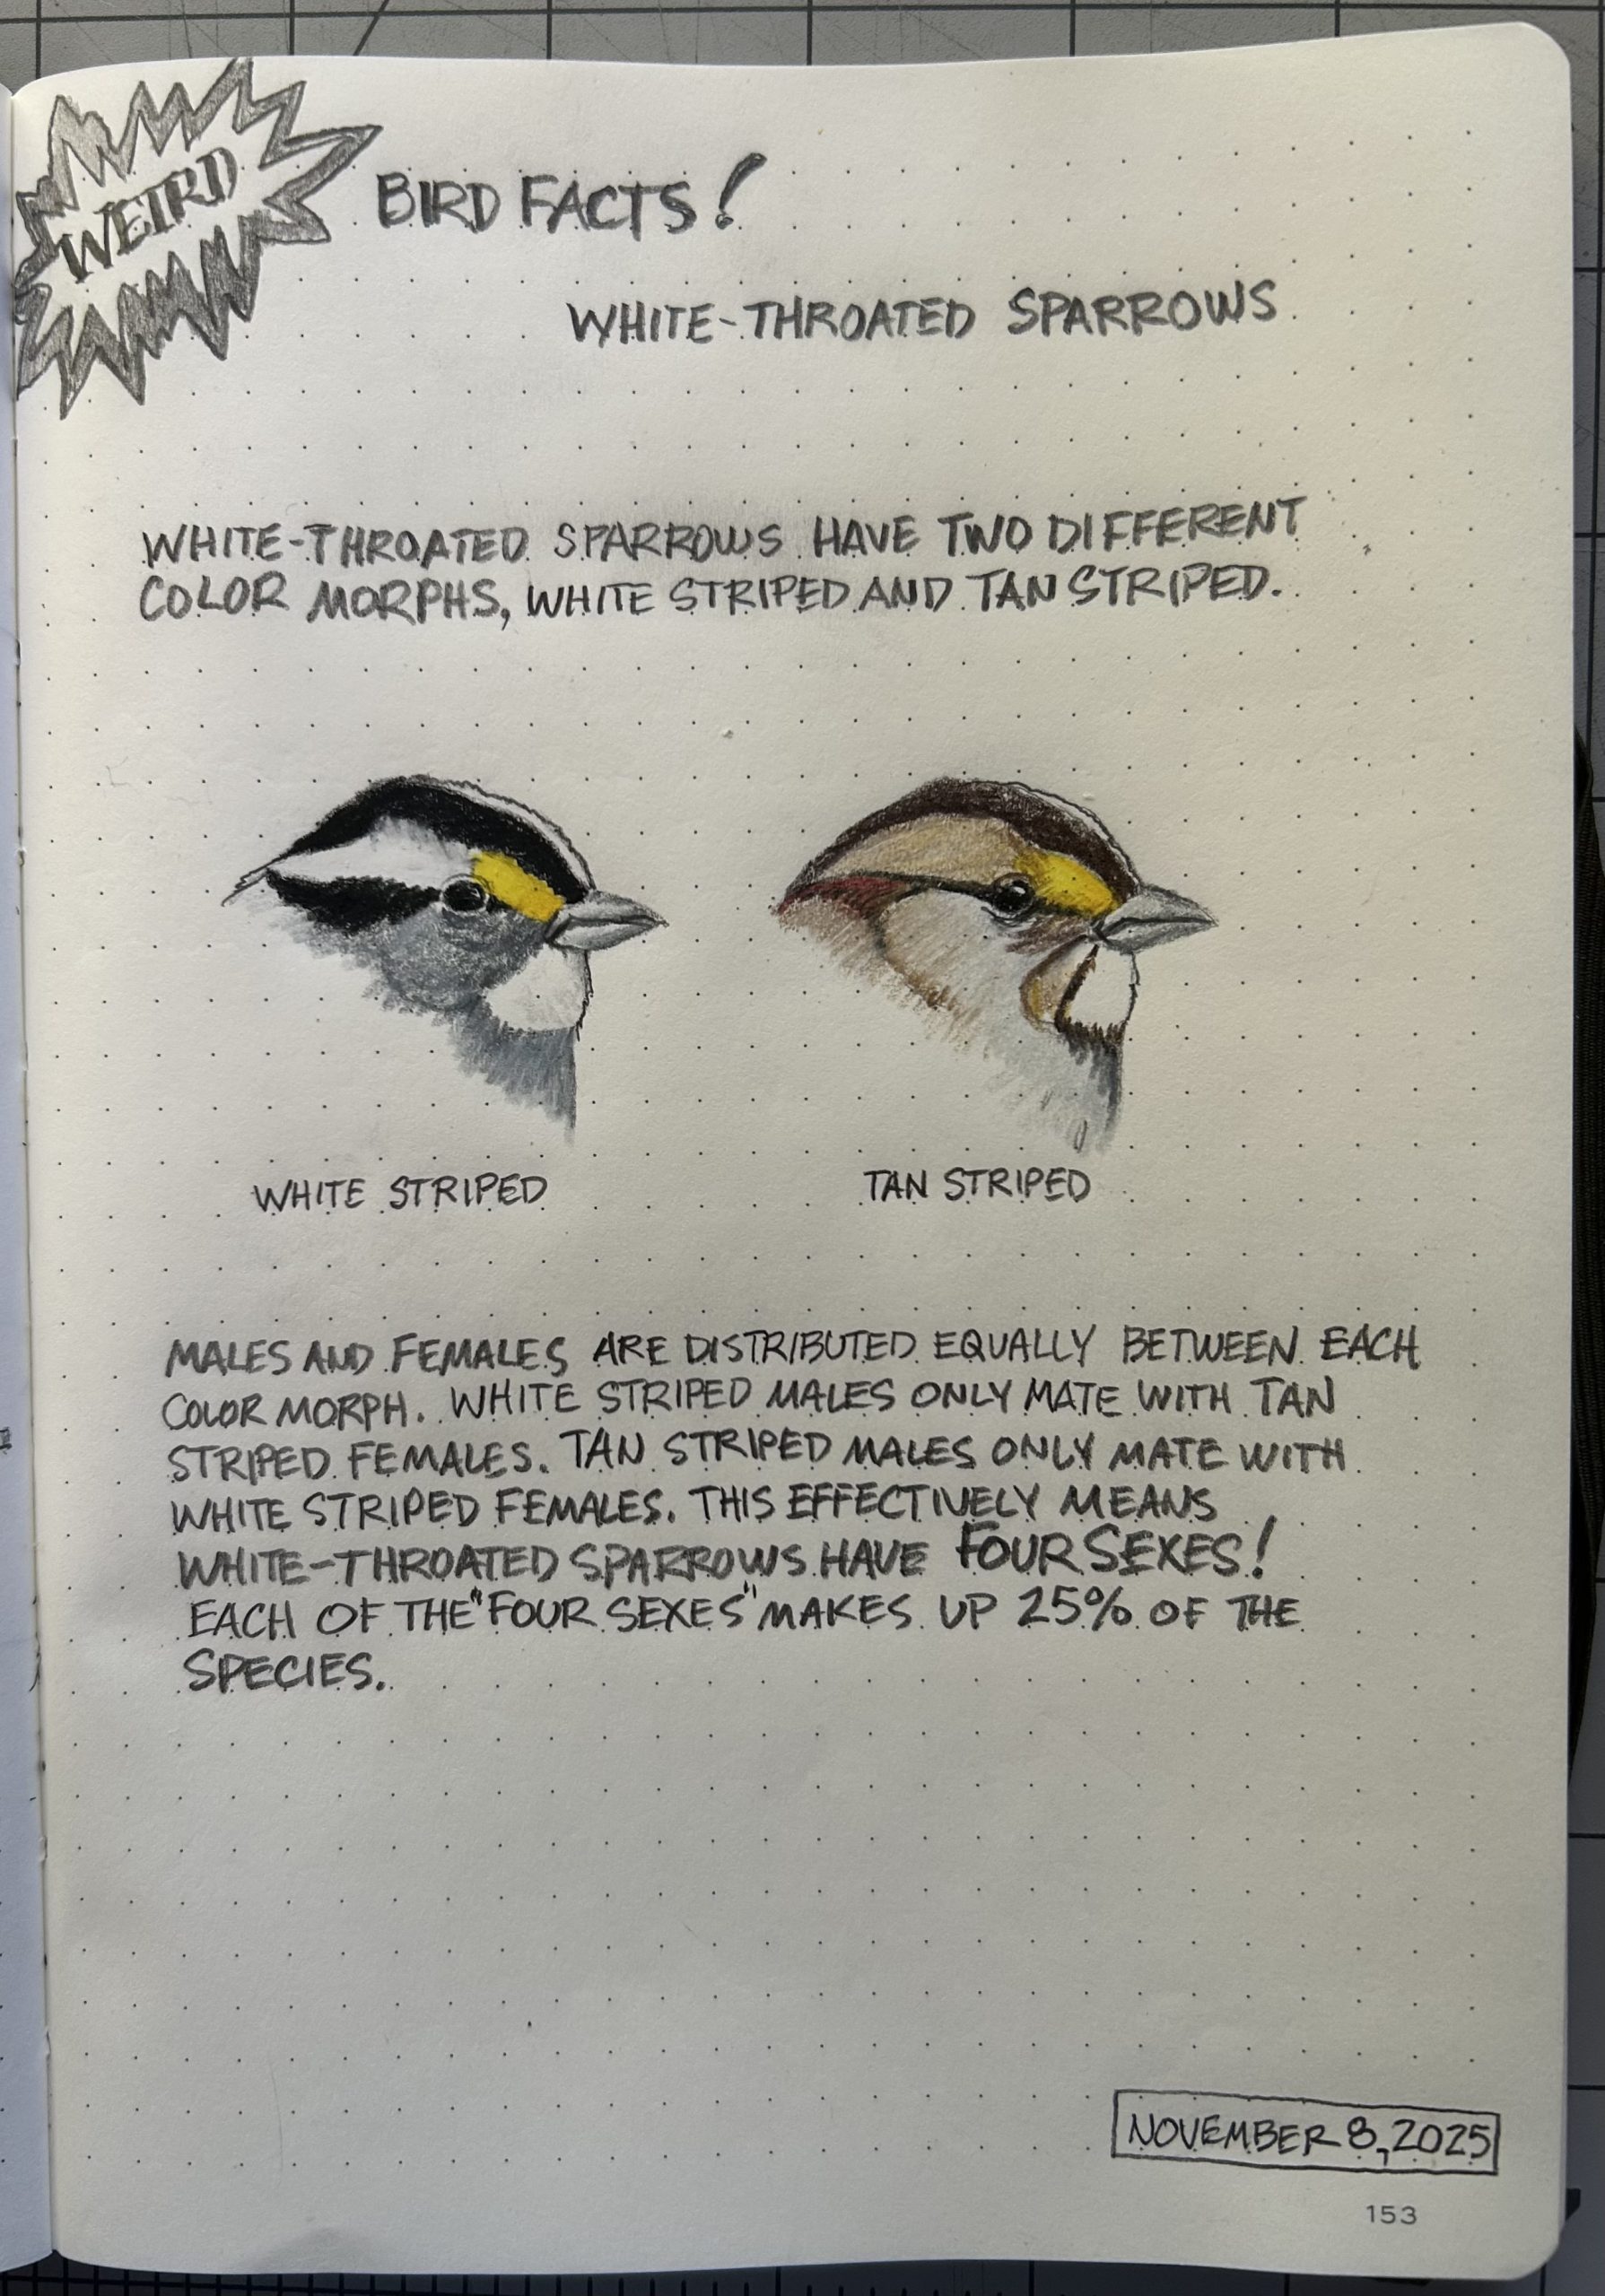 WEIRD BIRD FACTS!
WHITE-THROATED SPARROWS
WHITE-THROATED SPARROWS HAVE TWO DIFFERENT
COLOR MORPHS, WHITE STRIPED AND TAN STRIPED.
WHITE STRIPED
TAN STRIPED
MALES AND FEMALES ARE DISTRIBUTED EQUALLY BETWEEN EACH
COLOR MORPH. WHITE STRIPED MALES ONLY MATE WITH TAN
STRIPED FEMALES. TAN STRIPED MALES ONLY MATE WITH
WHITE STRIPED FEMALES. THIS EFFECTIVELY MEANS
WHITE-THROATED SPARROWS HAVE FOUR SEXES!
EACH OF THE "FOUR SEXES" MAKES UP 25% OF THE
SPECIES.
NOVEMBER 8, 2025
153